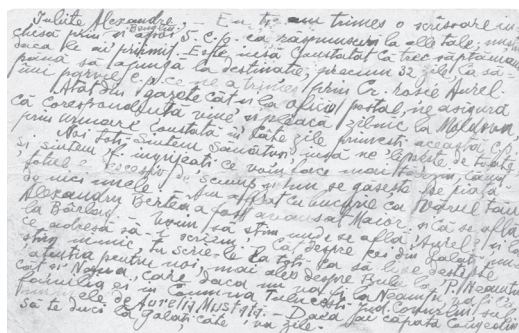 Iubite Alexandre, — Eu ți-am trimes o scrisoare în-
chisă prin și apoi 5 C.p. ca răspunsuri la ale tale,
daca le ai primit. Este însă constatat că trec săptămâni
până să ajungă la destinație, precum 32 zile la să-
mi parvie C.p. ce ne-a trimes prin Cr. rosie Aurel.
Atât din gazete cât și la oficiu postal, ne asigură
că corespondența vine și pleacă zilnic la Moldova
prin urmare constată în câte zile primești această C.p.
Noi toți suntem sănătoși, însă ne lipsește de toate
și suntem f. îngrijați ce vom face mai târziu, când
totul e excesiv de scump și nu se găsește pe piață
de nici unele. — Am aflat cu bucurie ca vărul tau
Alexandru Berlea a fost avansat Maior, și că se află
la Bârlad. — voim să stim unde se află Aurel și la
ce adresă să-i scriem. — Cât despre cei din Galați nu
stim nimic, tu scrie-le la toți ca să le destepte
atentia pentru noi, mai ales despre P. Neamtu
cât și Neagua, care daca nu va la Neamțu, va fi cu
familia ei in comuna Tulucești, jud. Covurlui sub
numele de Aurelia Mustață. — Daca poți căpăta concediu
să te duci la Galați câte-va zile. —